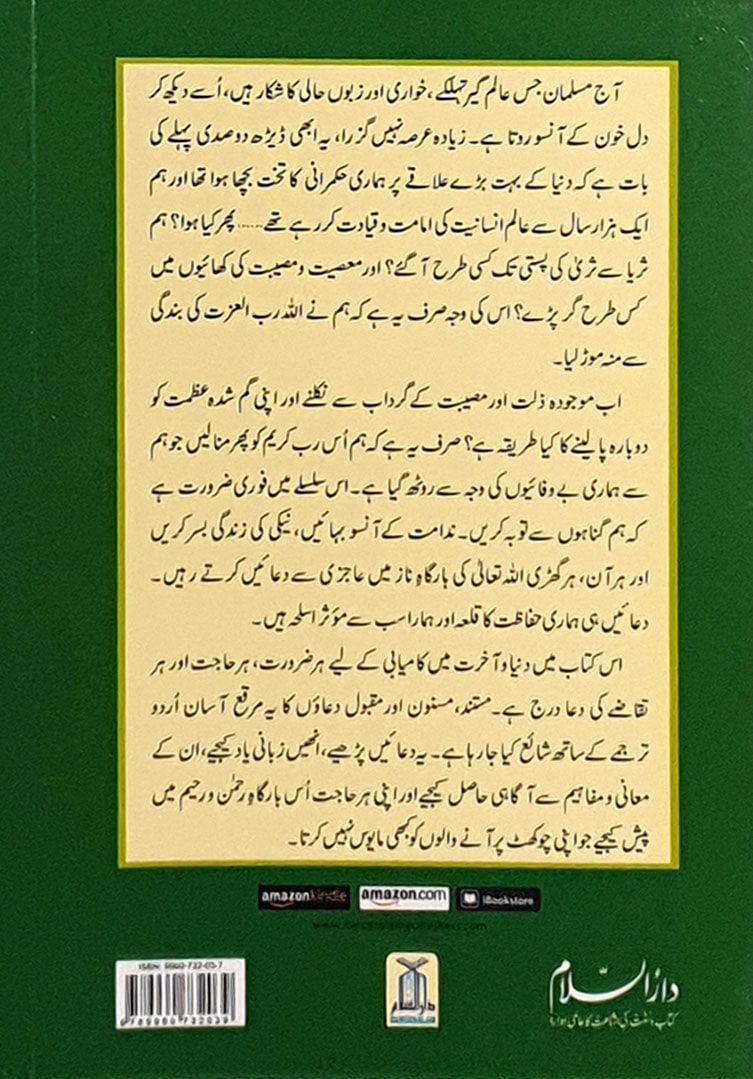 آج مسلمان جس عالم گیر تہلکے، خواری اور زبوں حالی کا شکار ہیں، اُسے دیکھ کر
دل خون کے آنسو روتا ہے۔ زیادہ عرصہ نہیں گزرا، یہ ابھی ڈیڑھ دو صدی پہلے کی
بات ہے کہ دنیا کے بہت بڑے علاقے پر ہماری حکمرانی کا تخت بچھا ہوا تھا اور ہم
ایک ہزار سال سے عالم انسانیت کی امامت و قیادت کر رہے تھے...... پھر کیا ہوا؟ ہم
ثریا سے ثریٰ کی پستی تک کسی طرح آ گئے؟ اور معصیت و مصیبت کی کھائیوں میں
کس طرح گر پڑے؟ اس کی وجہ صرف یہ ہے کہ ہم نے اللہ رب العزت کی بندگی
سے منہ موڑ لیا۔
اب موجودہ ذلت اور مصیبت کے گرداب سے نکلنے اور اپنی گم شدہ عظمت کو
دوبارہ پا لینے کا کیا طریقہ ہے؟ صرف یہ ہے کہ ہم اُس رب کریم کو پھر منا لیں جو ہم
سے ہماری بے وفائیوں کی وجہ سے روٹھ گیا ہے۔ اس سلسلے میں فوری ضرورت ہے
کہ ہم گناہوں سے توبہ کریں۔ ندامت کے آنسو بہائیں، نیکی کی زندگی بسر کریں
اور ہر آن، ہر گھڑی اللہ تعالیٰ کی بارگاہِ ناز میں عاجزی سے دعائیں کرتے رہیں۔
دعائیں ہی ہماری حفاظت کا قلعہ اور ہمارا سب سے مؤثر اسلحہ ہیں۔
اس کتاب میں دنیا و آخرت میں کامیابی کے لیے ہر ضرورت، ہر حاجت اور ہر
تقاضے کی دعا درج ہے۔ مستند، مسنون اور مقبول دعاؤں کا یہ مرقع آسان اُردو
ترجمے کے ساتھ شائع کیا جا رہا ہے۔ یہ دعائیں پڑھیے، انھیں زبانی یاد کیجیے، ان کے
معانی و مفاہیم سے آگاہی حاصل کیجیے اور اپنی ہر حاجت اُس بارگاہِ رحمٰن و رحیم میں
پیش کیجیے جو اپنی چوکھٹ پر آنے والوں کو کبھی مایوس نہیں کرتا۔
amazonkindle amazon.com iBookstore
ISBN: 9960-732-03-7
9789960732039
دارالسلام
دارُالسّلام
کتاب و سنّت کی اشاعت کا عالمی ادارہ